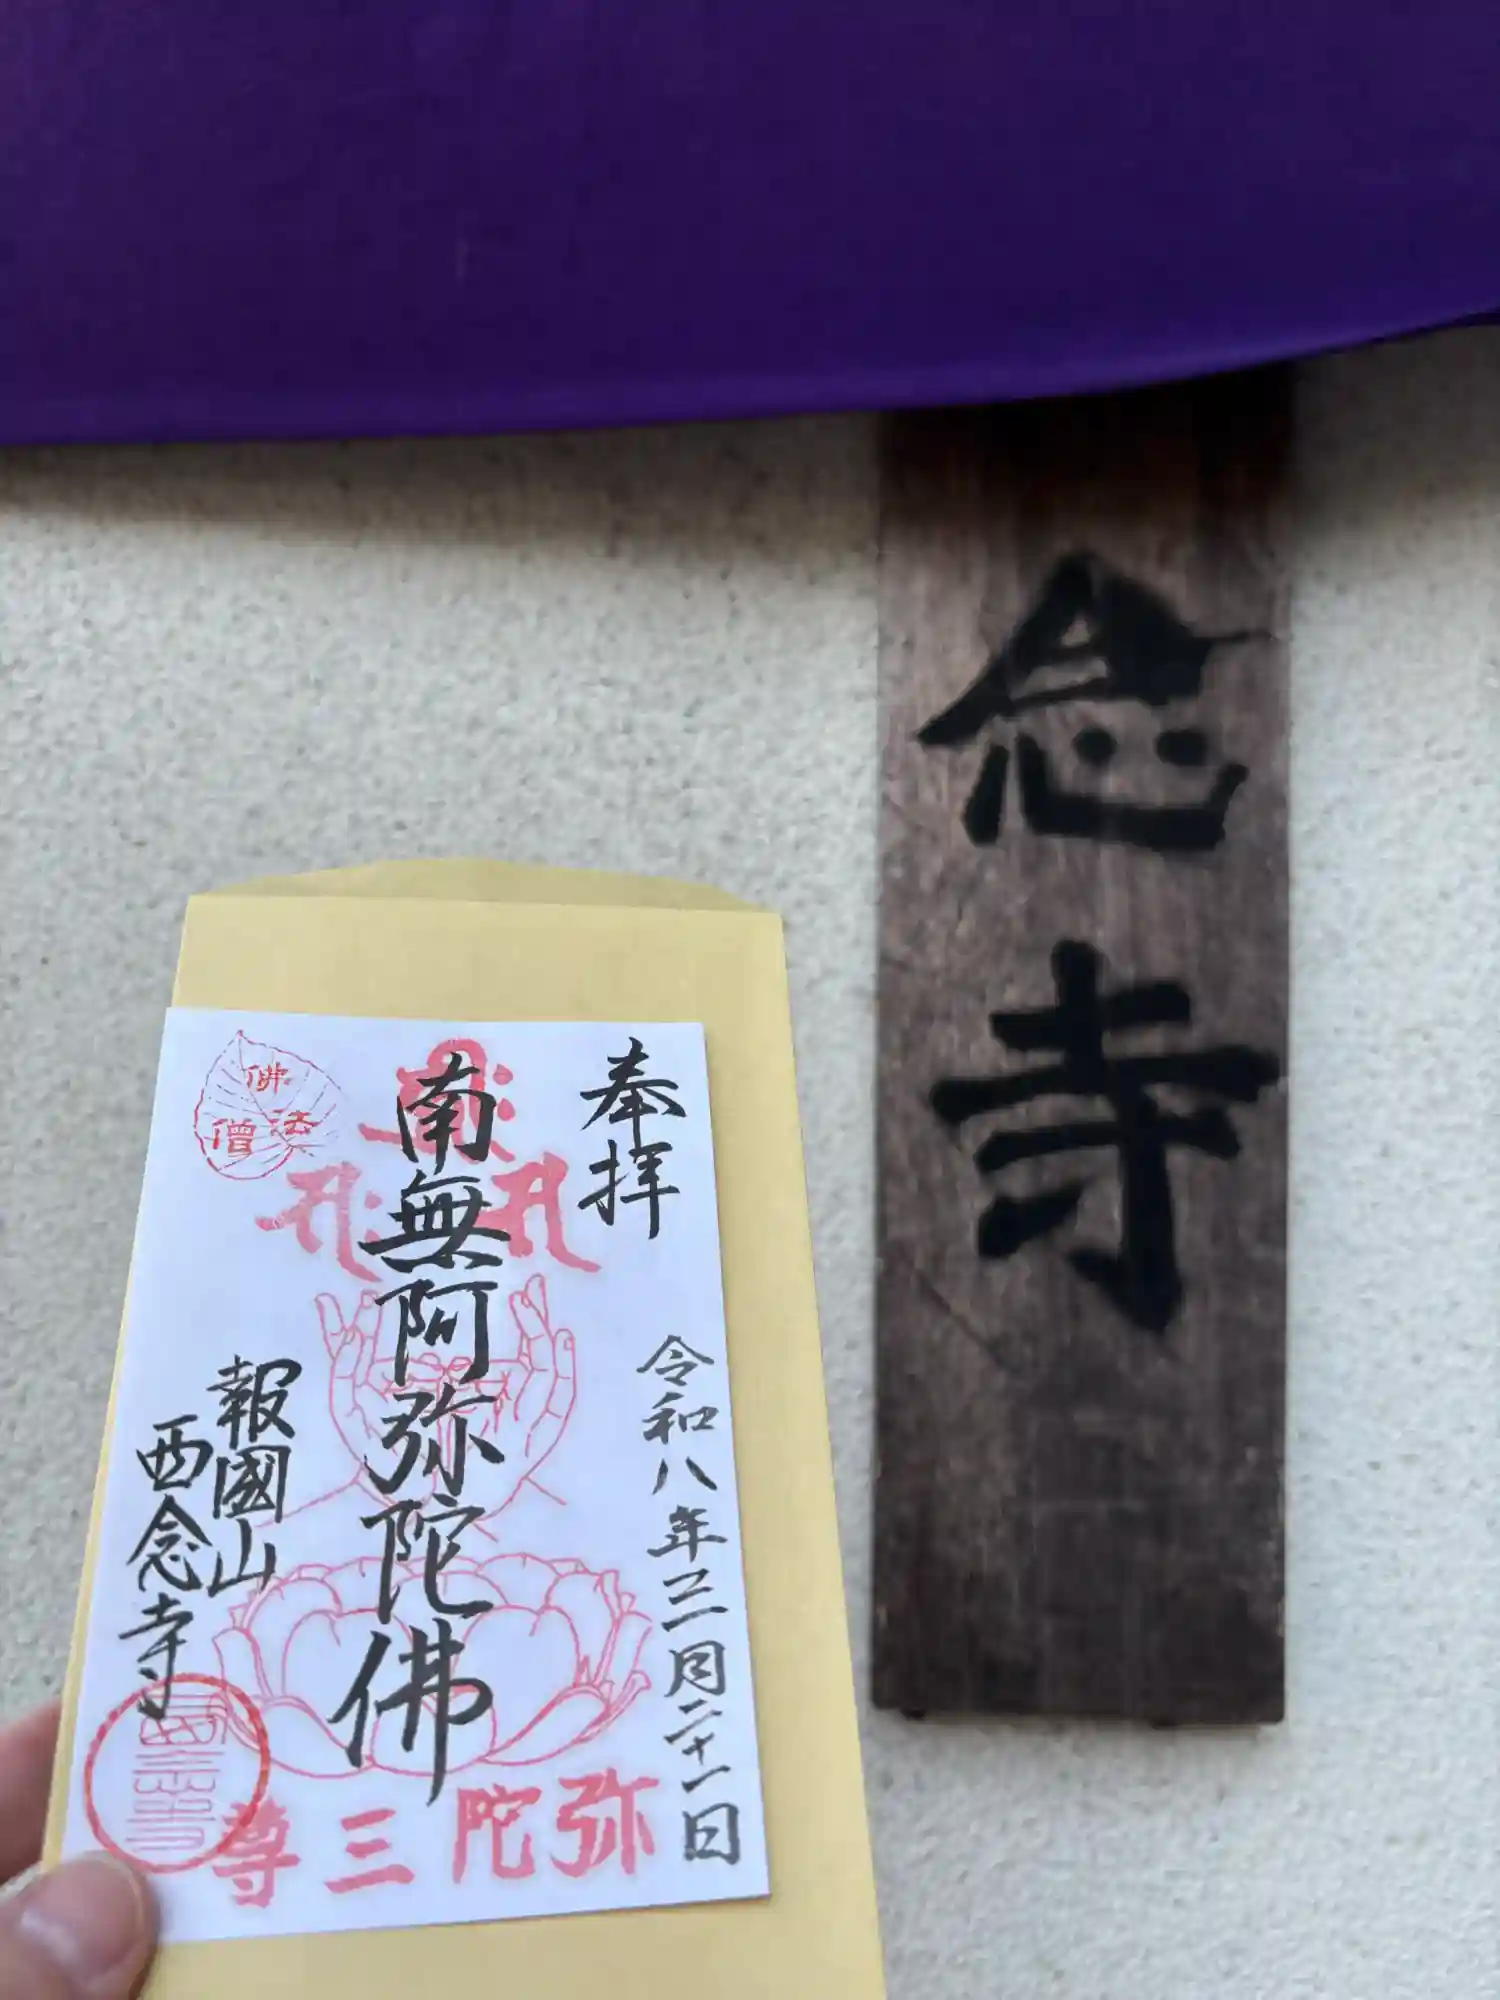 念寺
奉拝
令和八年三月二十一日
南無阿弥陀佛
報國山
西念寺
佛
法
僧
弥陀三尊